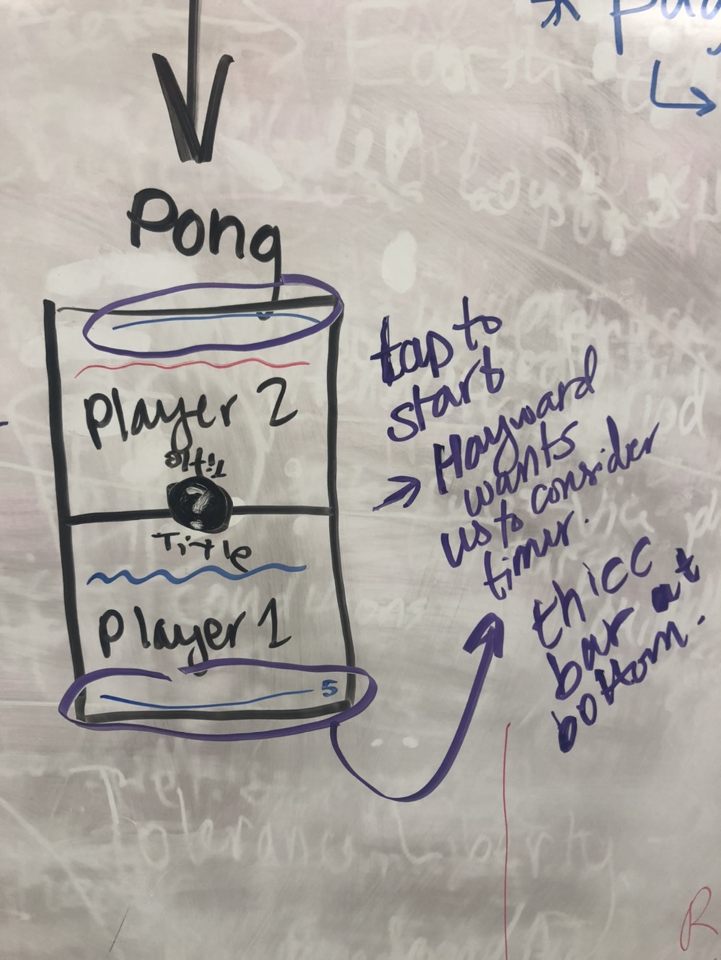 * Pag
Pong
Player 2
Title
?
Title
Player 1
5
tap to
start
→ Hayward
wants
us to consider
timer.
thicc
bar at
bottom.
Tolerance
R